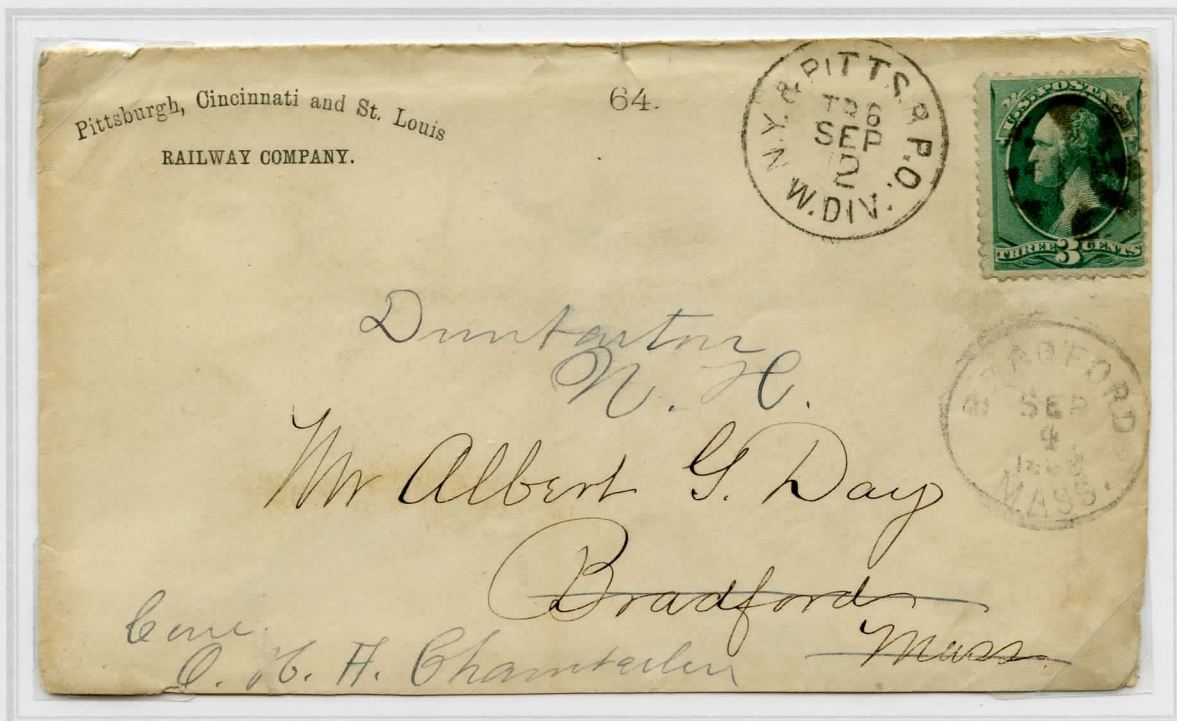 Pittsburgh, Cincinnati and St. Louis
RAILWAY COMPANY.
64.
N.Y. & PITTS. R.P.O.
TR6
SEP
2
W. DIV.
U.S. POSTAGE
THREE 3 CENTS
Dunbarton
N. H.
BRADFORD
SEP
4
MASS.
Mr Albert G. Day
Bradford
Mass.
Care
O. H. A. Chamberlin